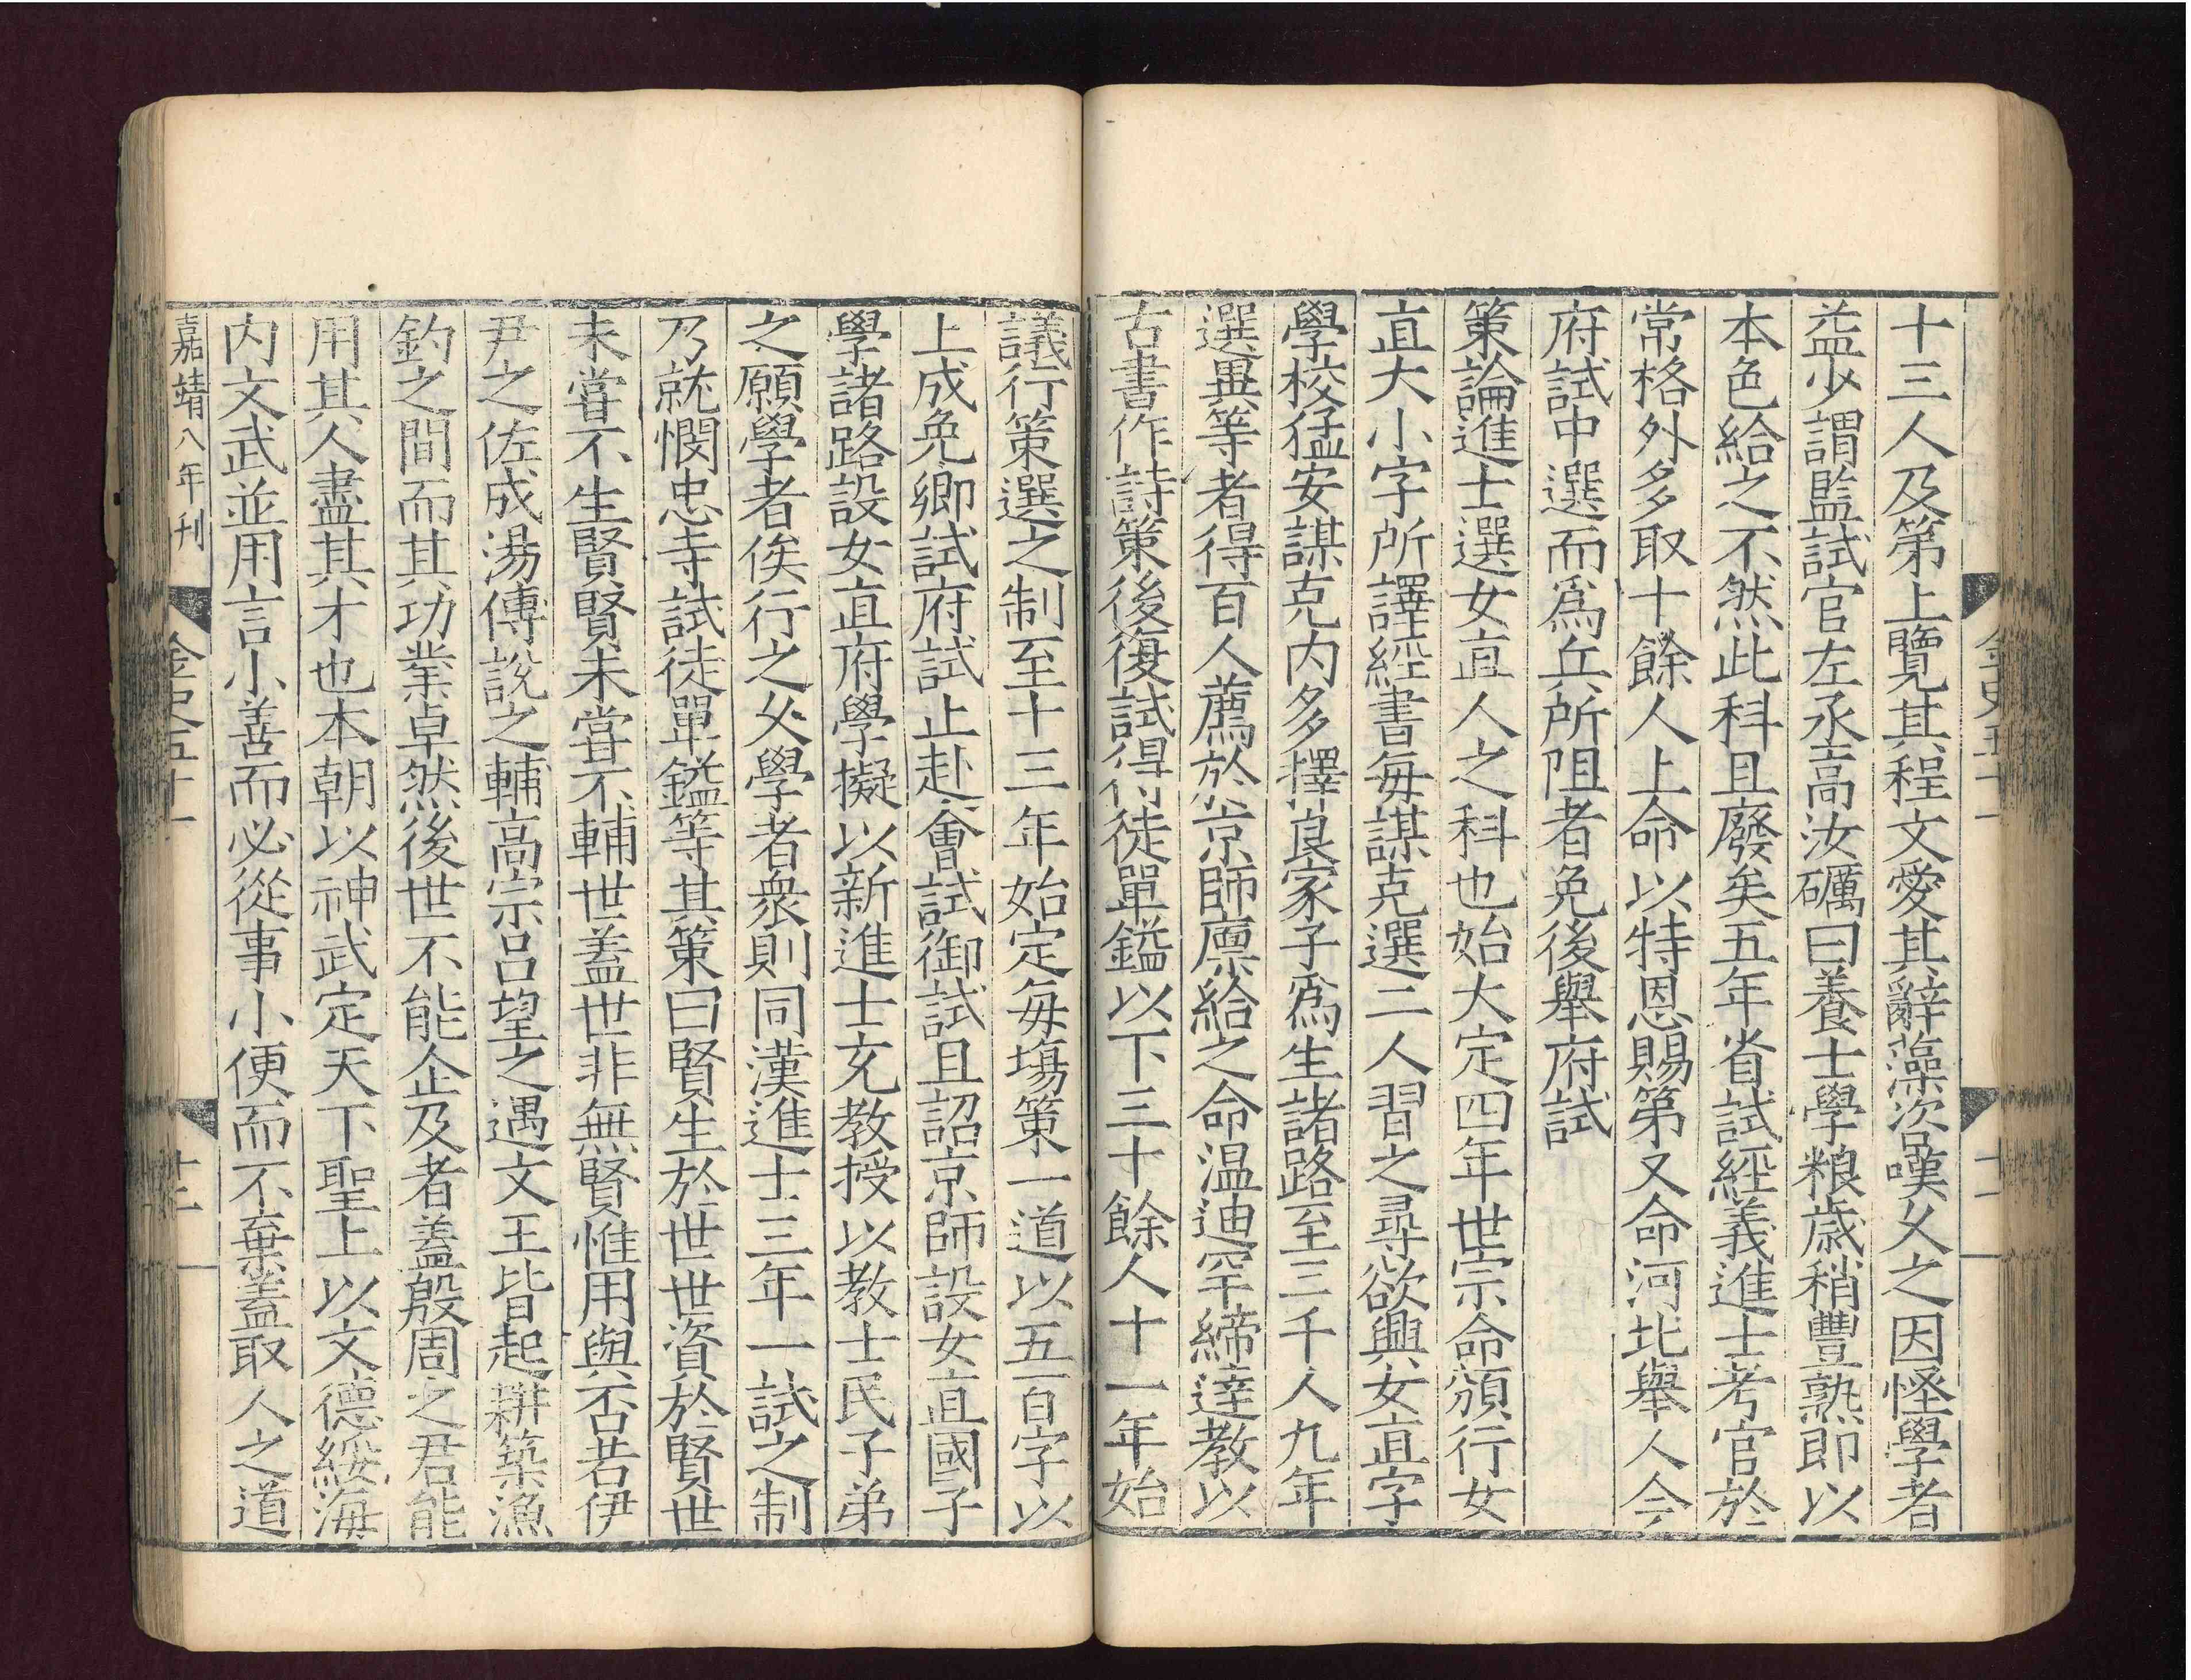 十三人及第上覽其程文愛其辭藻咨嘆久之因怪學者
益少謂監試官左丞高汝礪曰養士學粮歲稍豐熟即以
本色給之不然此科且廢矣五年省試經義進士考官於
常格外多取十餘人上命以特恩賜第又命河北舉人今
府試中選而爲兵所阻者免後舉府試
策論進士選女直人之科也始大定四年世宗命頒行女
直大小字所譯經書每謀克選二人習之尋欲興女直字
學校猛安謀克内多擇良家子爲生諸路至三千人九年
選異等者得百人薦於京師廪給之命温迪罕締達教以
古書作詩策後復試得徒單鎰以下三十餘人十一年始
議行策選之制至十三年始定每塲策一道以五百字以
上成免鄉試府試止赴會試御試且詔京師設女直國子
學諸路設女直府學擬以新進士充教授以教士民子弟
之願學者俟行之久學者衆則同漢進士三年一試之制
乃就憫忠寺試徒單鎰等其策曰賢生於世世資於賢世
未嘗不生賢賢未嘗不輔世蓋世非無賢惟用與否若伊
尹之佐成湯傅說之輔高宗吕望之遇文王皆起耕築漁
釣之間而其功業卓然後世不能企及者蓋殷周之君能
用其人盡其才也本朝以神武定天下聖上以文德綏海
内文武並用言小善而必從事小便而不棄蓋取人之道
嘉靖八年刊
金史五十一
十二